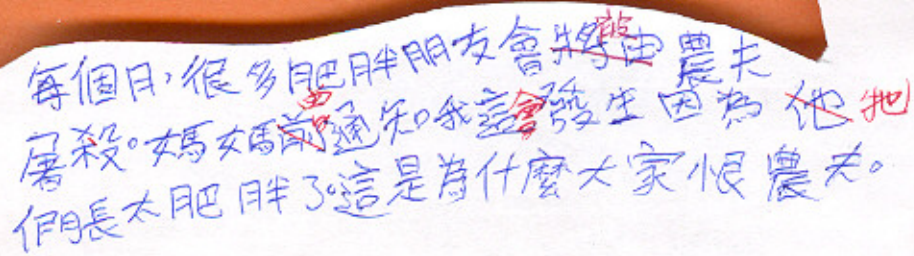 每個日，很多肥胖朋友會將由被農夫
屠殺。媽媽前曾通知我這會發生因為他牠
們長太肥胖了。這是為什麼大家恨農夫。